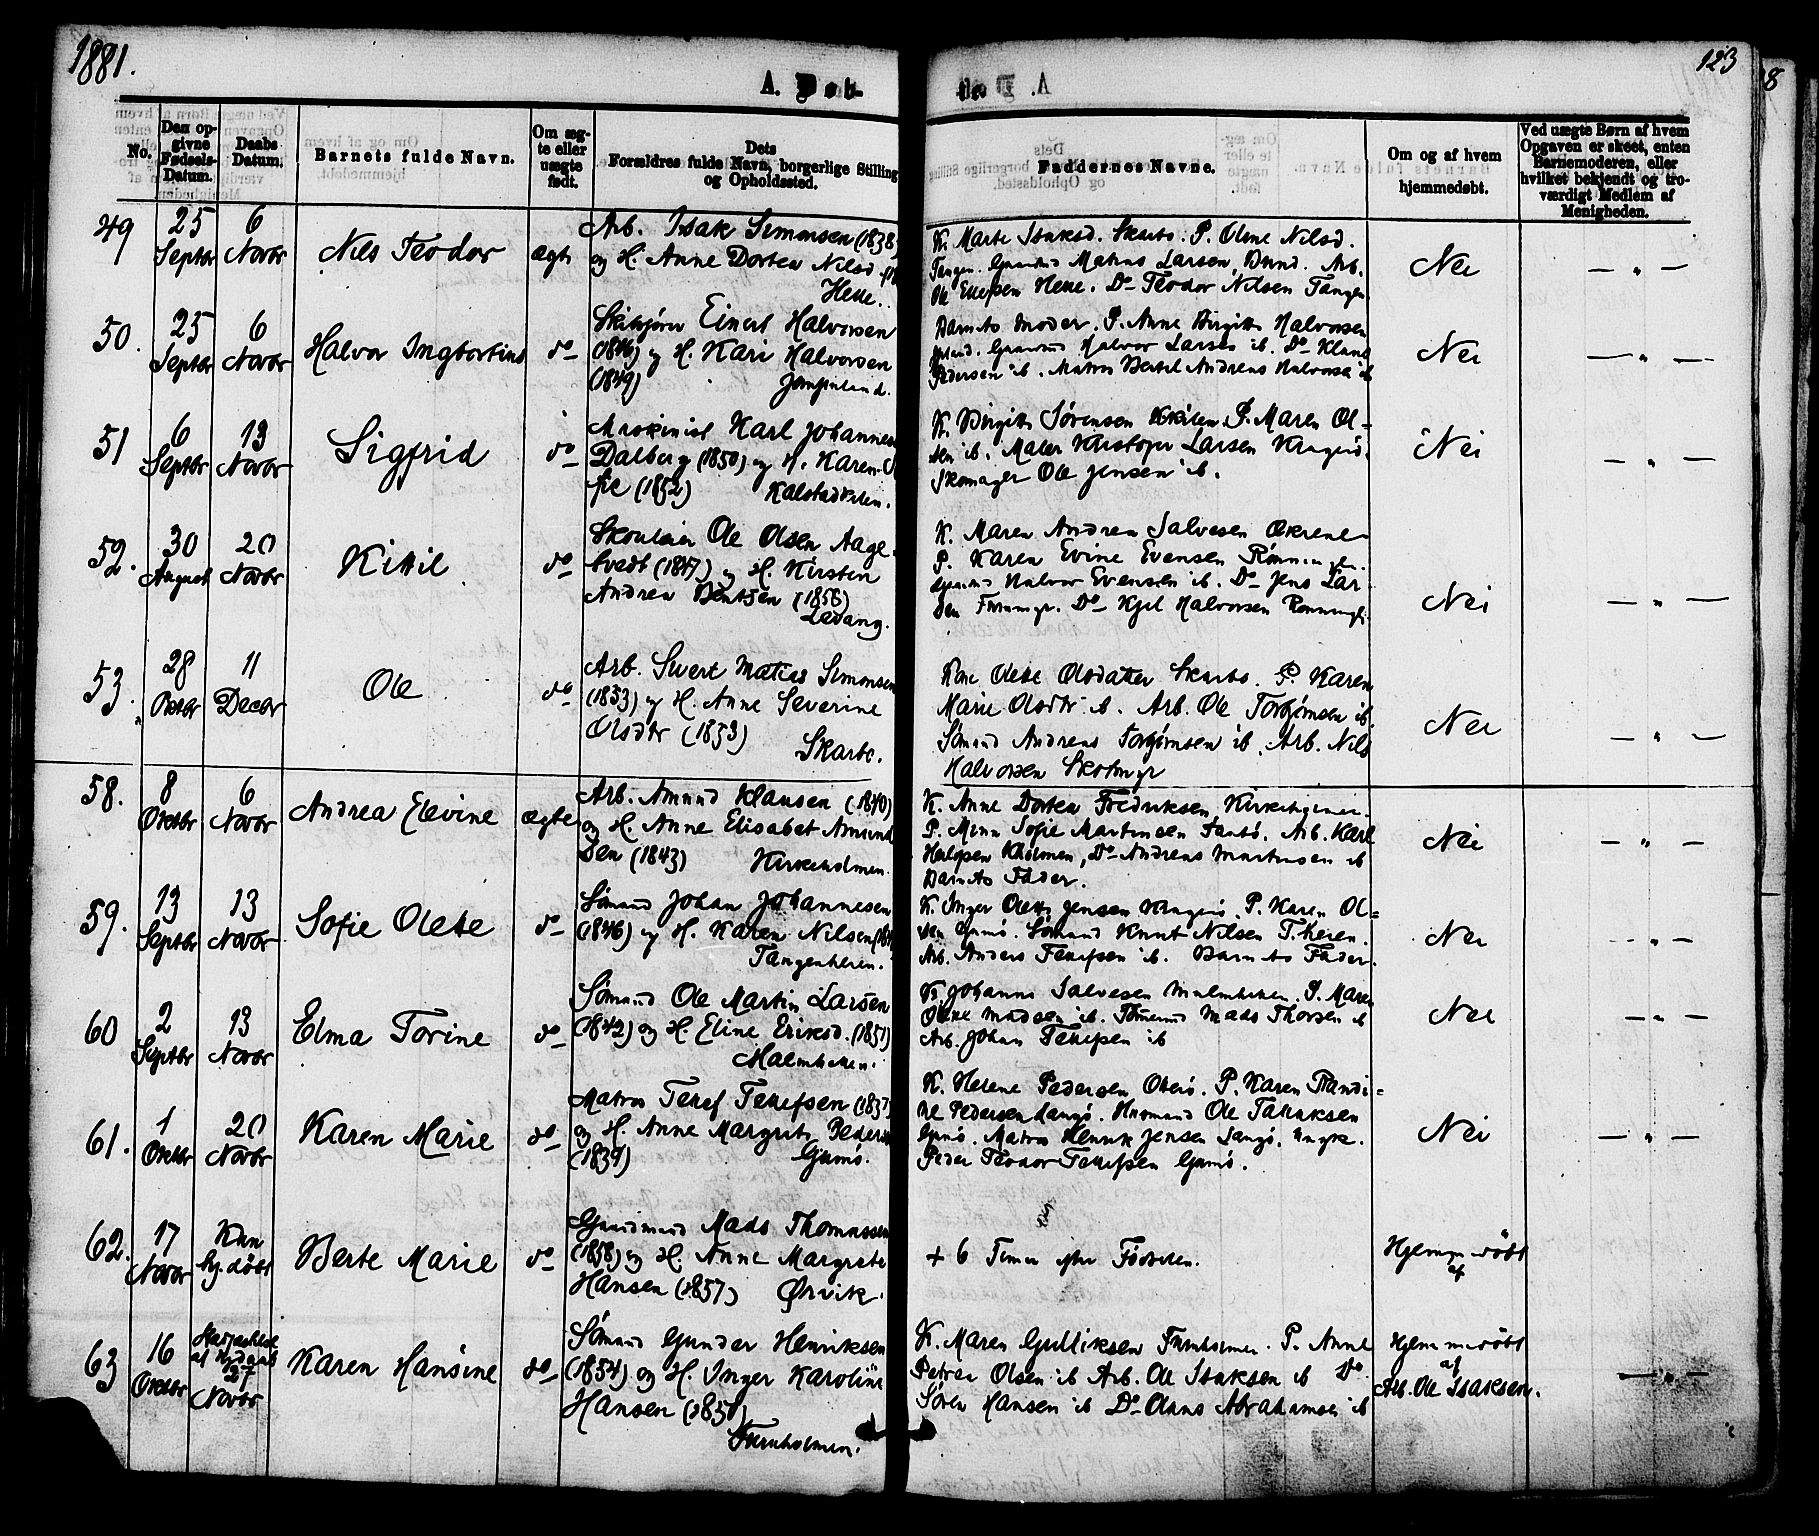 1881.
123
8
A. Døb
No.
Den op-
givne
Fødsels-
Datum.
Daabs
Datum.
Barnets fulde Navn.
Om æg-
te eller
uægte
født.
Dets
Forældres fulde Navn, borgerlige Stilling
og Opholdssted.
Faddernes Navne.
Om og af hvem
hjemmedøbt.
Ved uægte Børn af hvem
Opgaven er skeet, enten
Barnemoderen, eller
hvilket bekjendt og tro-
værdigt Medlem af
Menigheden.
49
25
Septbr
6
Novbr
Nils Teodor
ægte
Arb. Isak Simonsen (1838)
og H. Anne Dortea Nilsd.
Helle.
K. Marte Isaksd. Skarbo. P. Oline Nilsd.
Tangen. Matias Larsen, Arb.
Ole Ellefsen Helle. Do Teodor Nilsen Tangen
Nei
50.
25
Septbr
6
Novbr
Halvor Ingbortius
do
Einert Halvorsen
(1846) og H. Kari Halvorsen
(1849) Jomfruland.
Barnets Moder. P. Anne Birgitte Halvorsen
Halvor Larsen ib. Do Klaus
Pedersen ib. Matros Bertel Andreas Halvorsen ib
Nei
51
6
Septbr
13
Novbr
Sigfrid
do
Maskinist Karl Johannes
Dalberg (1850) og H. Karen So-
fie (1852) Kalstadkilen.
K. Birgitte Sørensen Kkilen. P. Maren Ol-
sen ib. Maler Kristofer Larsen Kragerø.
Skomager Ole Jensen ib.
Nei
52.
30
August
20
Novbr
Kittil
do
Skoulærer Ole Olsen Aage-
tvedt (1847) og H. Kirsten
Andrea Bentsen (1856)
Levang.
K. Maren Andrea Salvesen Økrene-
P. Karen Evine Evensen Rønningen.
Halvor Evensen ib. Do Jens Lar-
sen Do Kjel Halvorsen
Nei
53.
28
Oktbr
11
Decbr
Ole
do
Arb. Sivert Matias Simonsen
(1853) og H. Anne Severine
Olsdtr (1853) Skarbo.
Kone Olebe Olsdatter Skarbo. P. Karen
Marie Olsdtr ib. Arb. Ole Torbjørnsen ib.
Sømand Andreas Torbjørnsen ib. Arb. Nils
Halvorsen Skotmyr
Nei
58.
8
Oktbr
6
Novbr
Andrea Elevine
ægte
Arb. Amund Klausen (1840)
og H. Anne Elisabet Amund-
sen (1843) Kirkeholmen.
K. Anne Dortea Fredriksen,
P. Mina Sofie Martinsen Arb. Karl
Kholmen, Do Andreas Martinsen ib
Barnets Fader.
Nei
59.
13
Septbr
13
Novbr
Sofie Olebe
do
Sømand Johan Johannesen
(1846) og H. Karen Nilsen
Tangenheien.
K. Inger Olette Jensen Kragerø. P. Karen Ol-
sen Gumø. Sømand Knut Nilsen T.heien.
Arb. Anders Tellefsen ib. Barnets Fader.
Nei
60
2
Septbr
13
Novbr
Elma Torine
do
Sømand Ole Martin Larsen
(1842) og H. Eline Eriksd. (1851)
Malmheien.
K. Johanne Salvesen Malmheien. P. Maren
Oline Madsen ib. Tømmermand Mads Thorsen ib
Arb. Johan Tellefsen ib
Nei
61.
1
Oktbr
20
Novbr
Karen Marie
do
Matros Tellef Tellefsen (1837)
og H. Anne Margrete Peders
(1839) Gumø.
K. Helene Pedersen Oterø. P. Karen Randi-
ne Pedersen Langø. Ole Tallaksen
Gumø. Matros Henrik Jensen Langø. Ungk.
Peder Teodor Tellefsen Gumø.
Nei
62.
17
Novbr
Kun
hj. døbt
Berte Marie
do
Mads Thomassen
(1858) og H. Anne Margrete
Hansen (1857) Ørvik.
+ 6 Timer efter Fødselen.
Hjemmedøbt
af
63
16
Oktbr
Stadfæstet
27
Novbr
Karen Hansine
do
Sømand Gunder Henriksen
(1854) og H. Inger Karoline
Hansen (1850)
Furuholmen.
K. Maren Gulliksen Furuholmen. P. Anne
Petrea Olsen ib Arb. Ole Isaksen ib Do
Søren Hansen ib Do Olaus Abrahamsen ib
Hjemmedøbt
af
Arb. Ole Isaksen.